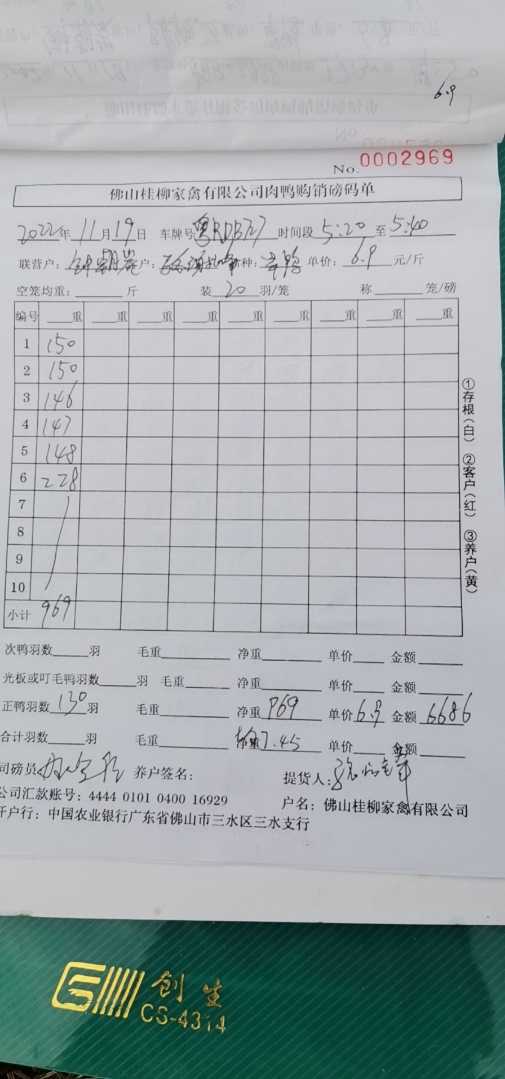 6.9
No. 0002969
佛山桂柳家禽有限公司肉鸭购销磅码单
2022年 11月19日 车牌号 粤RDB727 时间段 5:20 至 5:40
联营户: 户: 种: 单价: 6.9 元/斤
空笼均重: 斤 装 20 羽/笼 称 笼/磅
编号 重 重 重 重 重 重 重 重 重
1 150
2 150
3 146
4 147
5 148
6 228
7
8
9
10
小计 969
①存根(白) ②客户(红) ③养户(黄)
次鸭羽数 羽 毛重 净重 单价 金额
光板或叮毛鸭羽数 羽 毛重 净重 单价 金额
正鸭羽数 130 羽 毛重 净重 969 单价 6.9 金额 6686
合计羽数 羽 毛重 7.45 单价 金额
司磅员 养户签名: 提货人:
公司汇款账号: 4444 0101 0400 16929 户名: 佛山桂柳家禽有限公司
开户行: 中国农业银行广东省佛山市三水区三水支行
创生
CS-4314